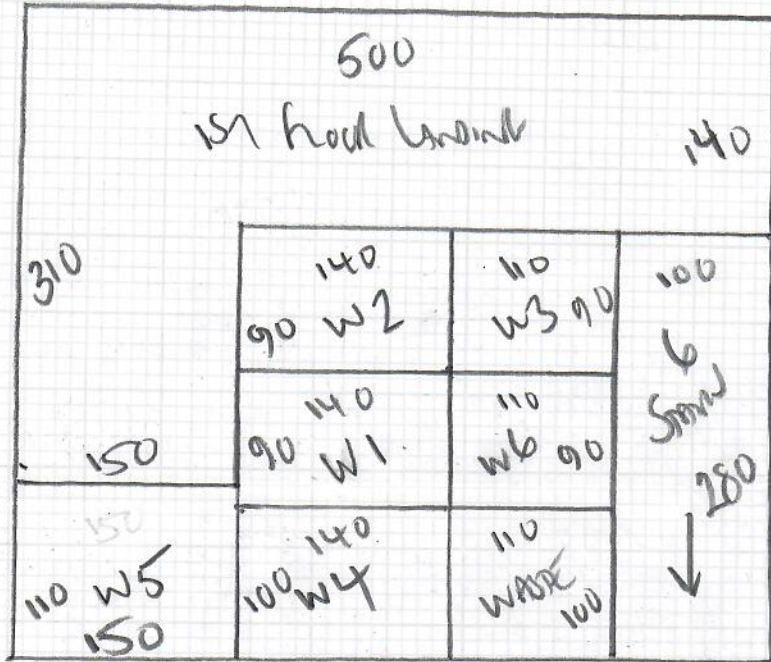 500
1st Floor Landing
140
310
150
140
90 W2
110
W3 90
100
6
280
140
90 W1
110
W6 90
150
110 W5
150
140
100 W4
110
WASTE
100